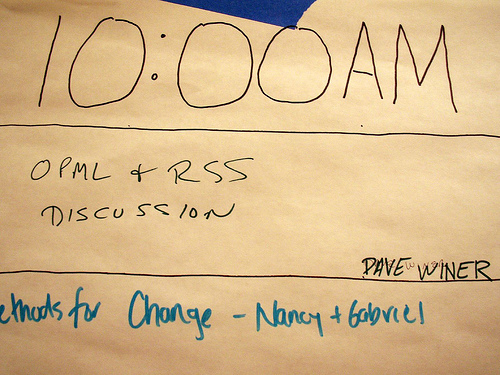 10:00AM
OPML + RSS
DISCUSSION
DAVE WINER
ethods for Change - Nancy + Gabriel